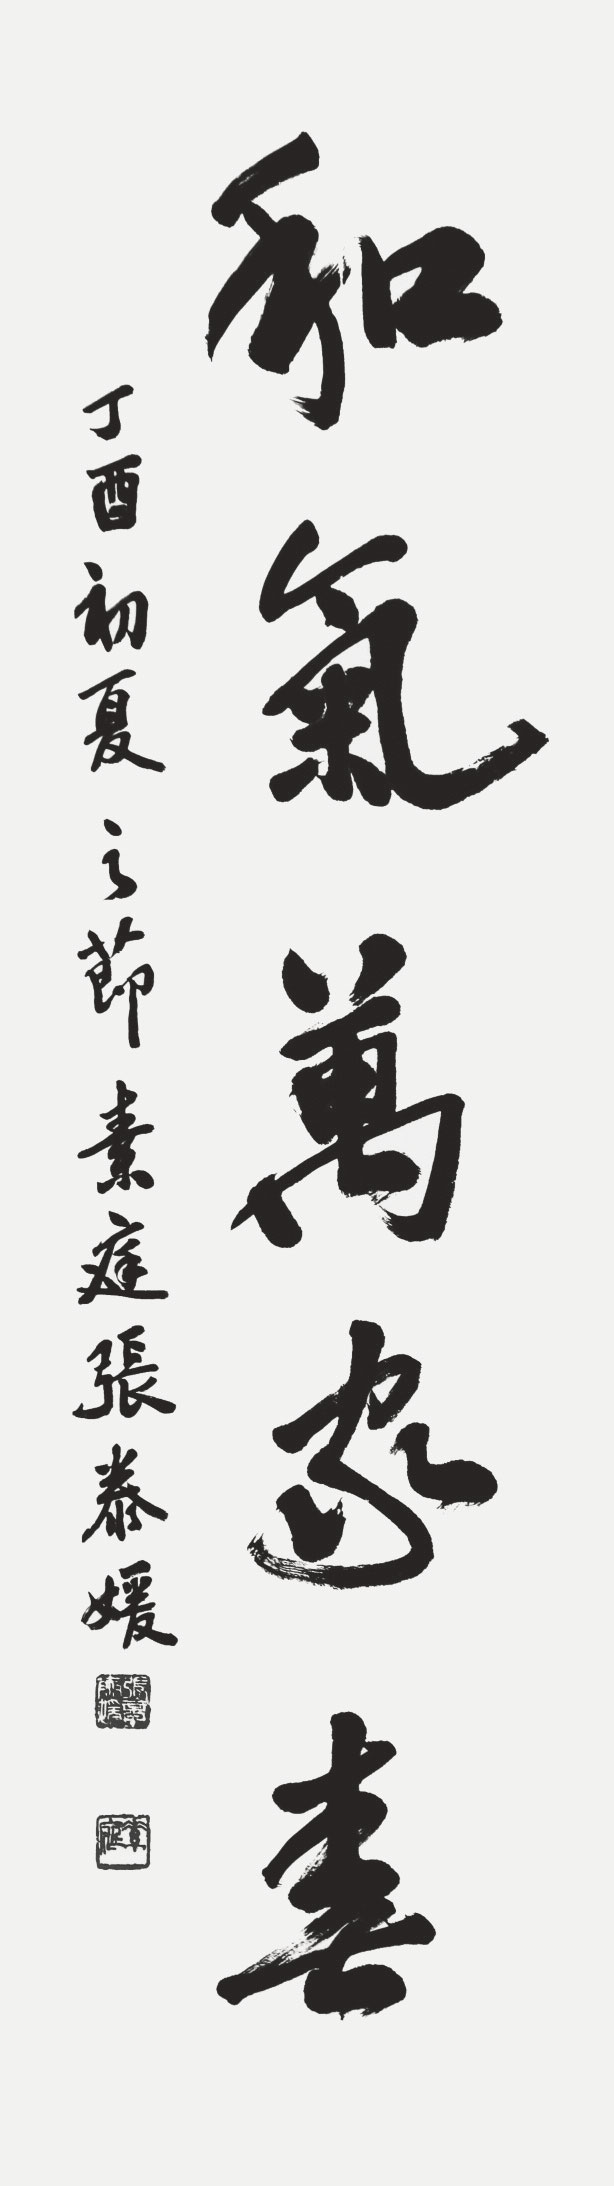 和氣萬家春
丁酉初夏之節素庭張泰媛